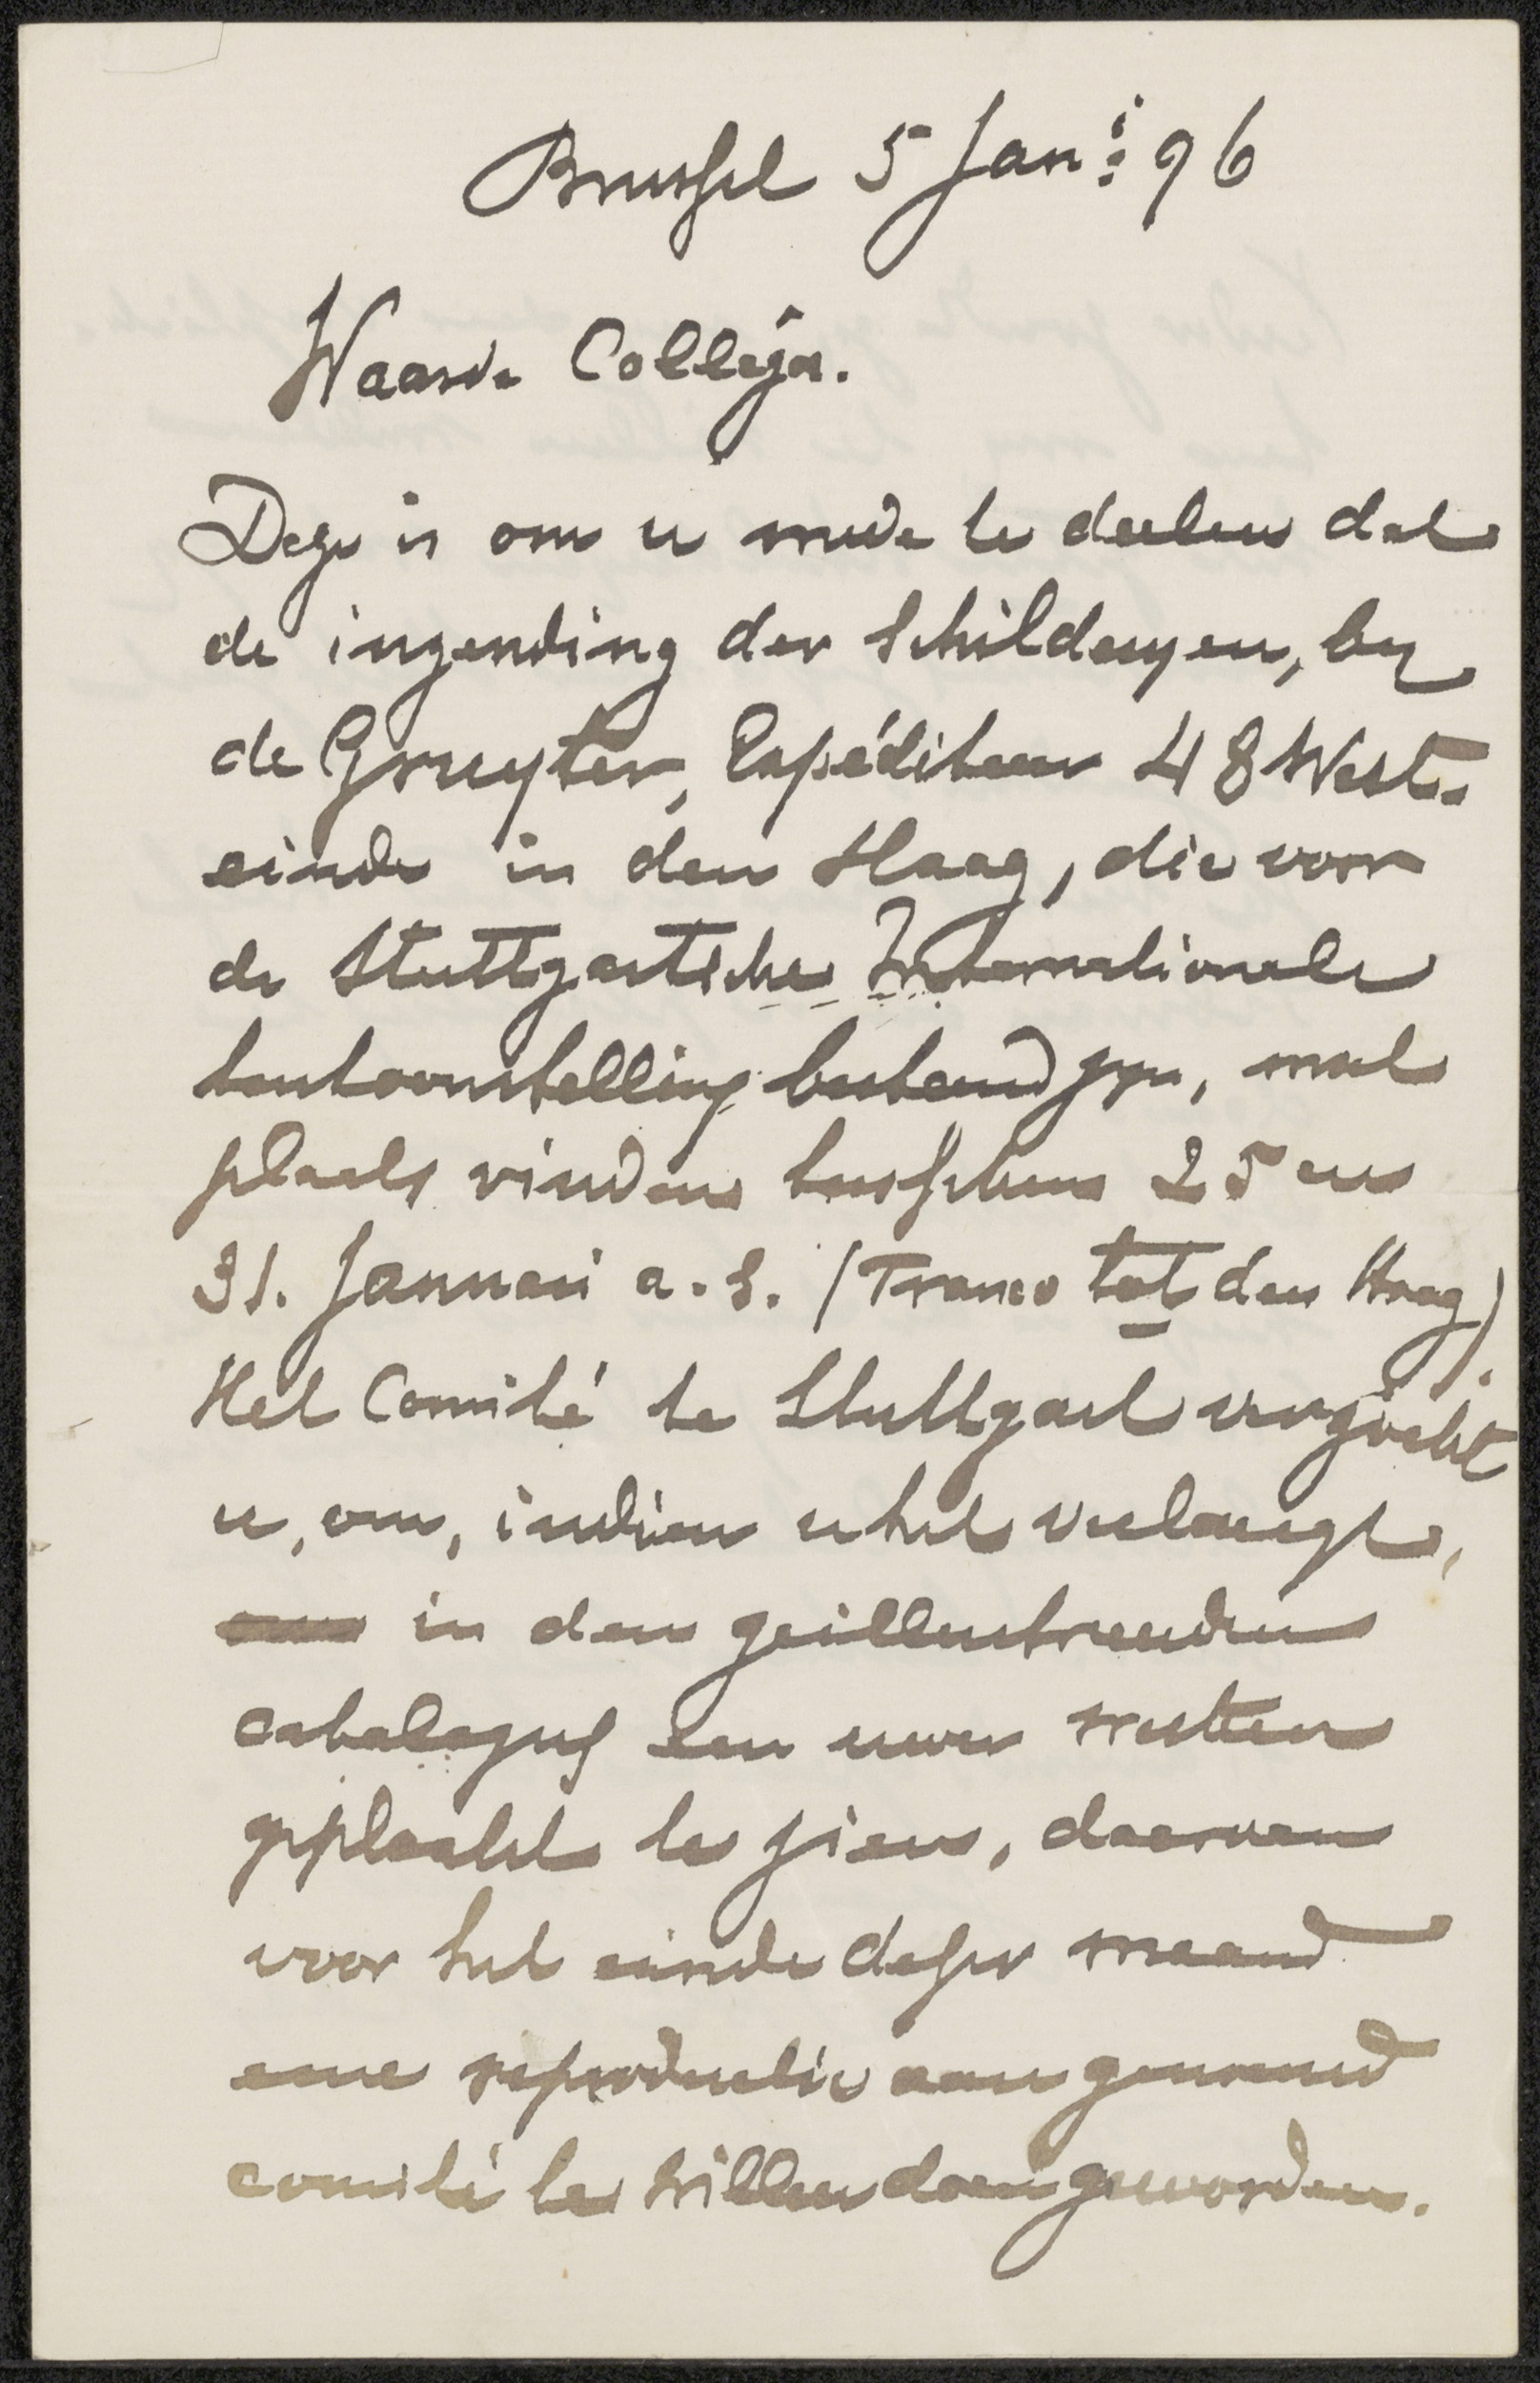 Brussel 5 Jan: 96
Waarde Collega.
Deze is om u mede te deelen dat
de inzending der schilderyen, by
de Gruyter, Expéditeur 48 West-
einde in den Haag, die voor
de Stuttgartsche Internationale
tentoonstelling bestemd zyn, moet
plaats vinden tusschen 25 en
31. Januari a.s. (Franco tot den Haag).
Het Comité te Stuttgart verzoekt
u, om, indien u het verlangt,
in den geillustreerden
catalogus een uwer werken
geplaatst te zien, daarvan
voor het einde dezer maand
eene reproductie aan genoemd
comité te willen doen geworden.